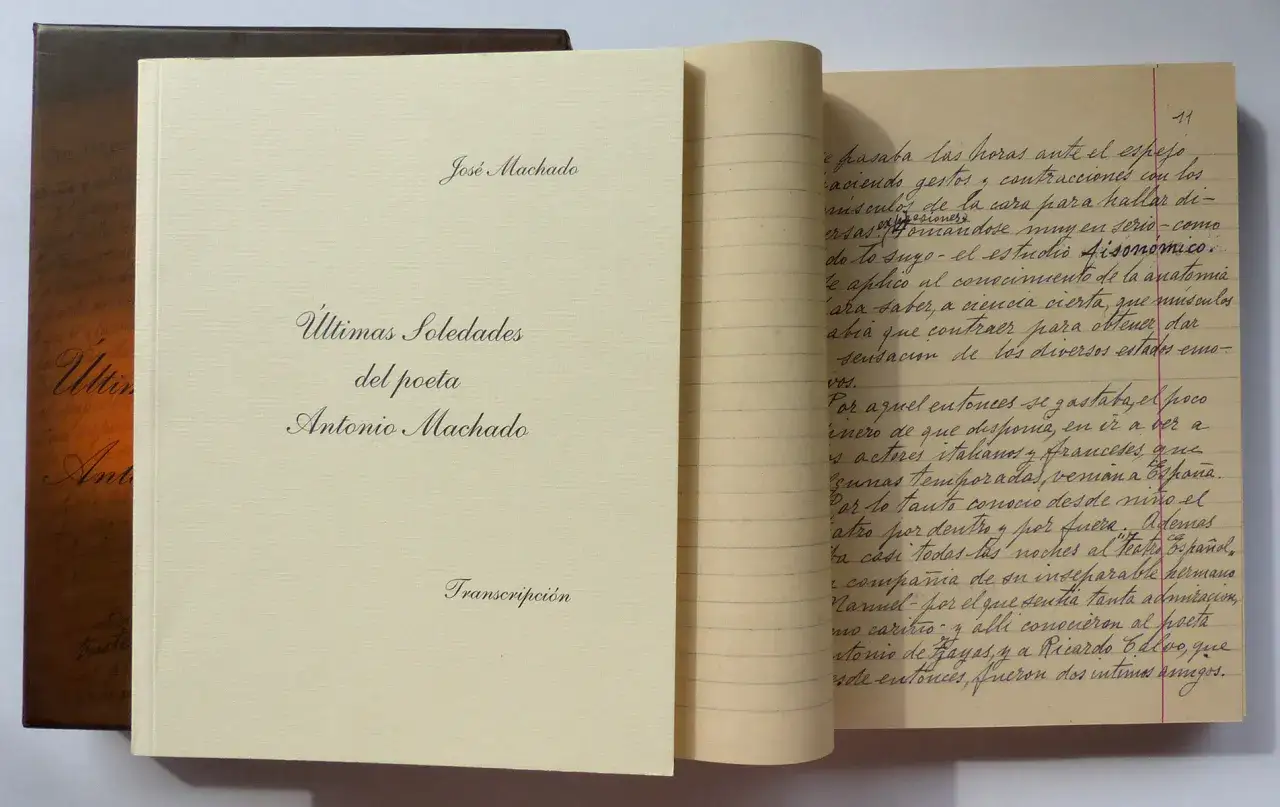 José Machado
Últimas Soledades
del poeta
Antonio Machado
Transcripción
Últim
Ant
11
pasaba las horas ante el espejo
aciendo gestos y contracciones con los
músculos de la cara para hallar di-
ersas expresiones
tomándose muy en serio - como
do lo suyo - el estudio fisonómico.
e aplicó al conocimiento de la anatomía
ara saber, a ciencia cierta, que músculos
abía que contraer para obtener dar
sensación de los diversos estados emo-
vos.
Por aquel entonces se gastaba, el poco
inero de que disponía, en ir a ver a
s acteres italianos y franceses que
gunas temporadas, venían a España.
Por lo tanto conoció desde niño el
atro por dentro y por fuera. Ademas
ba casi todas las noches al "Teatro Español"
compañía de su inseparable hermano
Manuel - por el que sentía tanta admiración,
mo cariño - y allí conocieron al poeta
ntonio de Zayas, y a Ricardo Calvo, que
sde entonces, fueron dos intimos amigos.